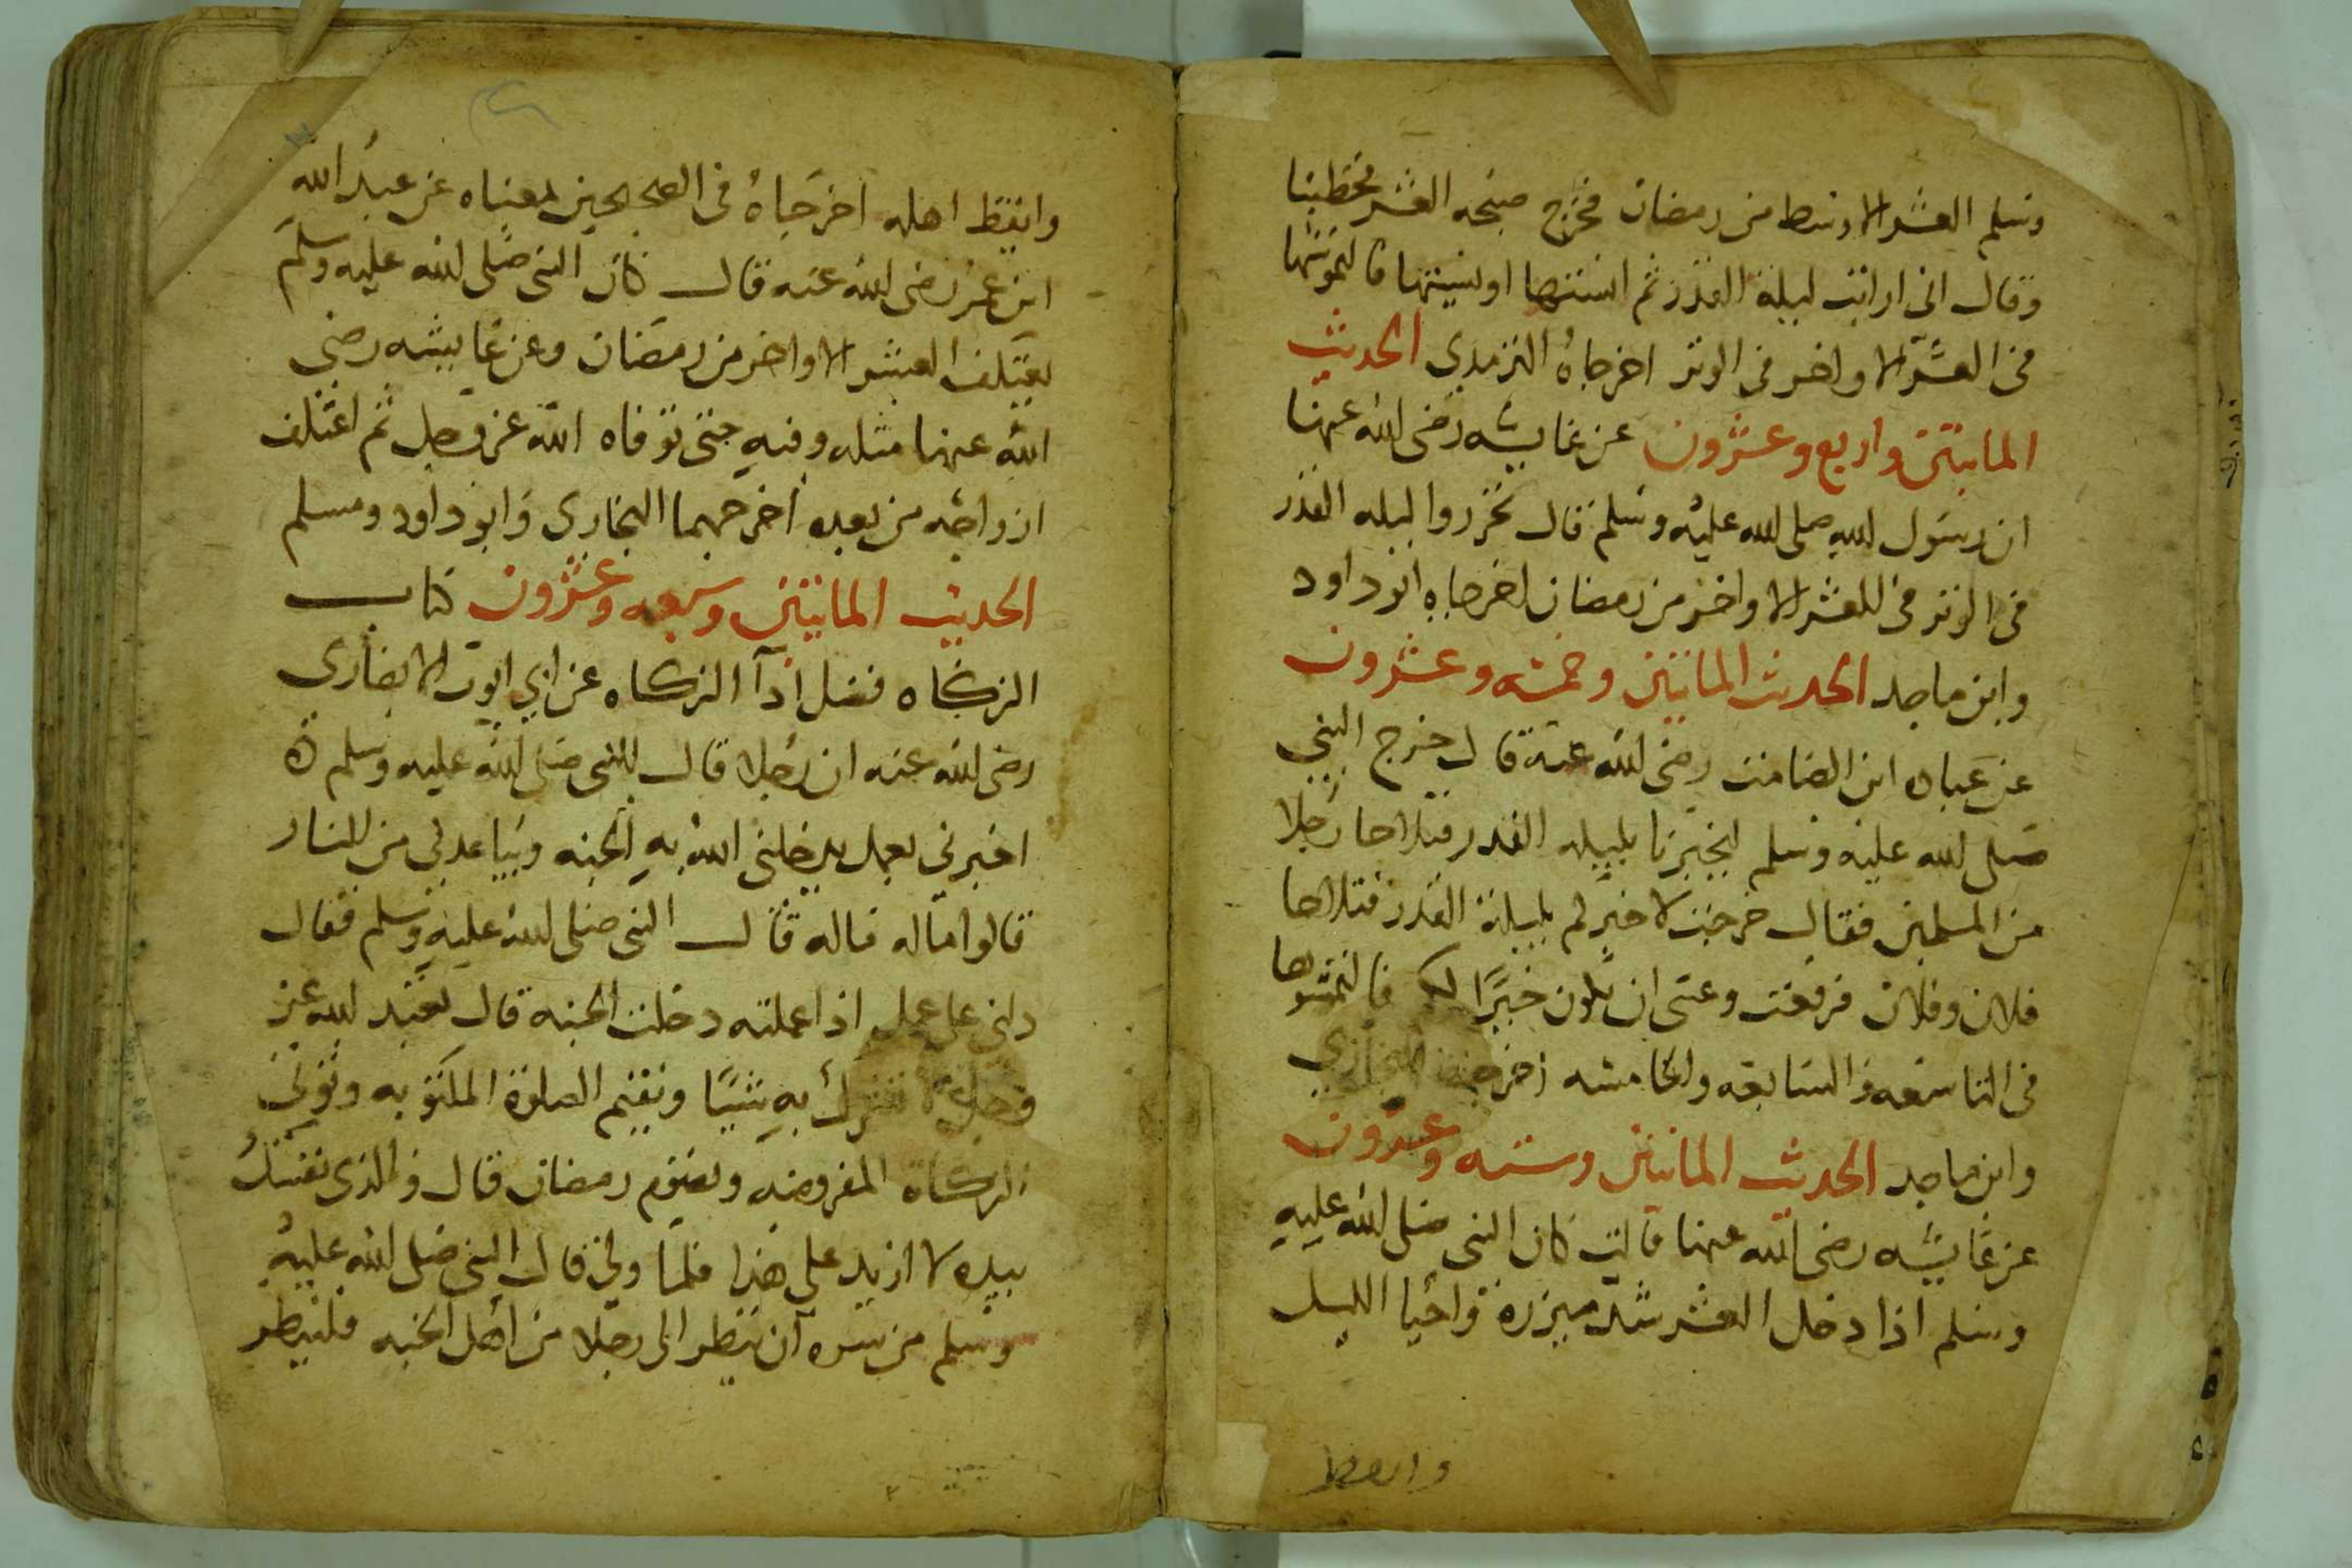 وسلم العشر الاوسط من رمضان فخرج صبحه العشر فخطبنا
وقال انى ارايت ليلة القدر ثم انسيتها او نسيتها فالتمسوها
فى العشر الاواخر فى الوتر اخرجاهُ الترمدي الحديث
الماىتين واربع وعشرون عن عايشه رضى الله عنها
ان رسول الله صلى الله عليه وسلم قال تحرروا ليله القدر
فى الوتر فى العشر الاواخر من رمضان اخرجاه ابو داود
وابن ماجد الحديث الماىتين وخمسه وعشرون
عن عباده ابن الصامت رضى الله عنه قال خرج النبي
صلى الله عليه وسلم ليخبرنا بليله القدر فتلاحا رجلا
من المسلمين فقال خرجت لاخبركم بليلة القدر فتلاحا
فلان وفلان فرفعت وعسى ان يكون خيرًا لكم فالتمسوها
فى التاسعه والسابعه والخامسه اخرجه البخاري
وابن ماجد الحديث الماىتين وسته وعشرون
عن عايشه رضى الله عنها قالت كان النبى صلى الله عليهِ
وسلم اذا دخل العشر شد ميزره واحيا الليل
وايقظ
وايقظ اهله اخرجاهُ فى الصحيحين بمعناه عن عبد الله
ابن عمر رضى الله عنه قال كان النبى صلى الله عليه وسلم
يعتكف العشر الاواخر من رمضان وعن عايشه رضى
الله عنها مثله وفيهِ حتى توفاه الله عز وجل ثم اعتكف
ازواجه من بعده اخرجهما البخارى وابو داود ومسلم
الحديث الماىتين وسبعه وعشرون كتاب
الزكاه فضل ادآ الزكاه عن ابي ايوب الانصارى
رضى الله عنه ان رجلا قال للنبى صلى الله عليه وسلم
اخبرنى بعمل يدخلنى الله بهِ الجنه ويباعدنى من النار
قالوا ماله ماله قال النبى صلى الله عليهِ وسلم فقال
دلنى على عمل اذا عملته دخلت الجنه قال تعبد الله عز
وجل لا تشرك بهِ شيًا وتقيم الصلوة المكتوبه وتوتى
الزكاة المفروضه وتصوم رمضان قال والذى نفسى
بيده لا ازيد على هذا فلما ولى قال النبى صلى الله عليهِ
وسلم من سره ان ينظر الى رجلا من اهل الجنه فلينظر